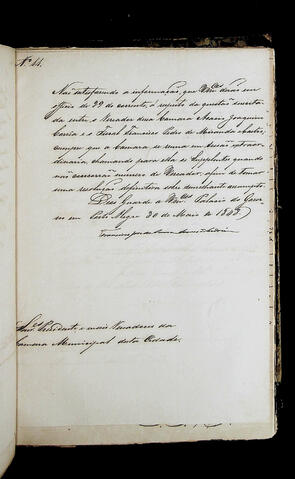 Nº 44.
Não satisfazendo a informação, que Vm.ces derão em
officio de 29 do corrente, a respeito da questão suscita
da entre o Vereador dessa Camara Joaquim
Corrêa e o Fiscal Francisco Pedro de Miranda e Castro,
cumpre que a Camara se reuna em Sessão extraor
dinaria, chamando para ella os Supplentes quando
não concorrão numero de Vereadores, afim de tomar
uma resolução definitiva sobre semelhante assumpto.
Deos Guarde a Vm.ces Palacio do Gover
no em Porto Alegre 30 de Maio de 1845.
Snr.es Presidente e mais Vereadores da
Camara Municipal desta Cidade.